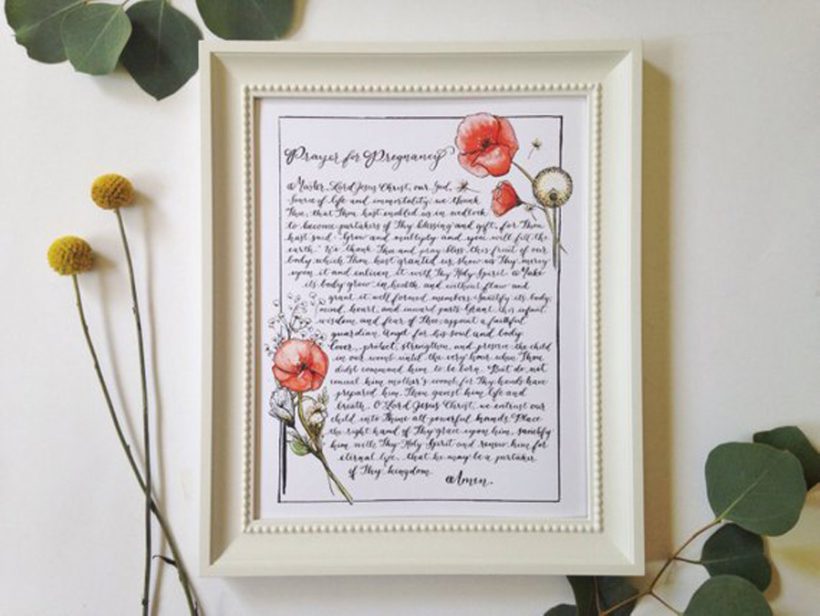 Prayer for Pregnancy
O Master, Lord Jesus Christ, our God,
source of life and immortality: we thank
Thee, that Thou hast enabled us in wedlock
to become partakers of Thy blessing and gift, for Thou
hast said: Grow and multiply and you will fill the
earth." We thank Thee and pray: bless this fruit of our
body which Thou hast granted us; show us Thy mercy
upon it and enliven it with Thy Holy Spirit. Make
its body grow in health and without flaw and
grant it well formed members. Sanctify its body,
mind, heart, and inward parts. Grant this infant
wisdom and fear of Thee; appoint a faithful
guardian Angel for his soul and body.
Cover, protect, strengthen, and preserve the child
in our womb until the very hour when Thou
didst command him to be born. But do not
conceal him mother's womb, for Thy hands have
prepared him. Thou gavest him life and
breath. O Lord Jesus Christ, we entrust our
child into Thine all-powerful hands. Place
the right hand of Thy grace upon him, sanctify
him with Thy Holy Spirit and renew him for
eternal life, that he may be a partaker
of Thy kingdom.
Amen.